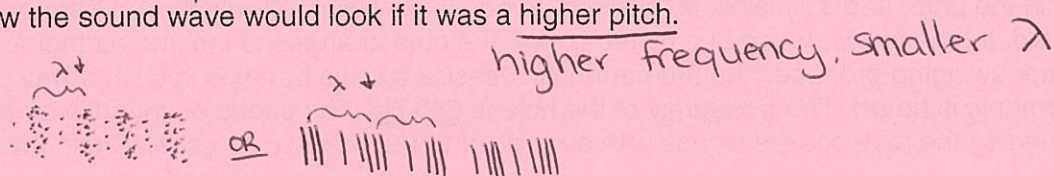 w the sound wave would look if it was a higher pitch.
higher frequency, smaller λ
λ↓ λ↓
OR